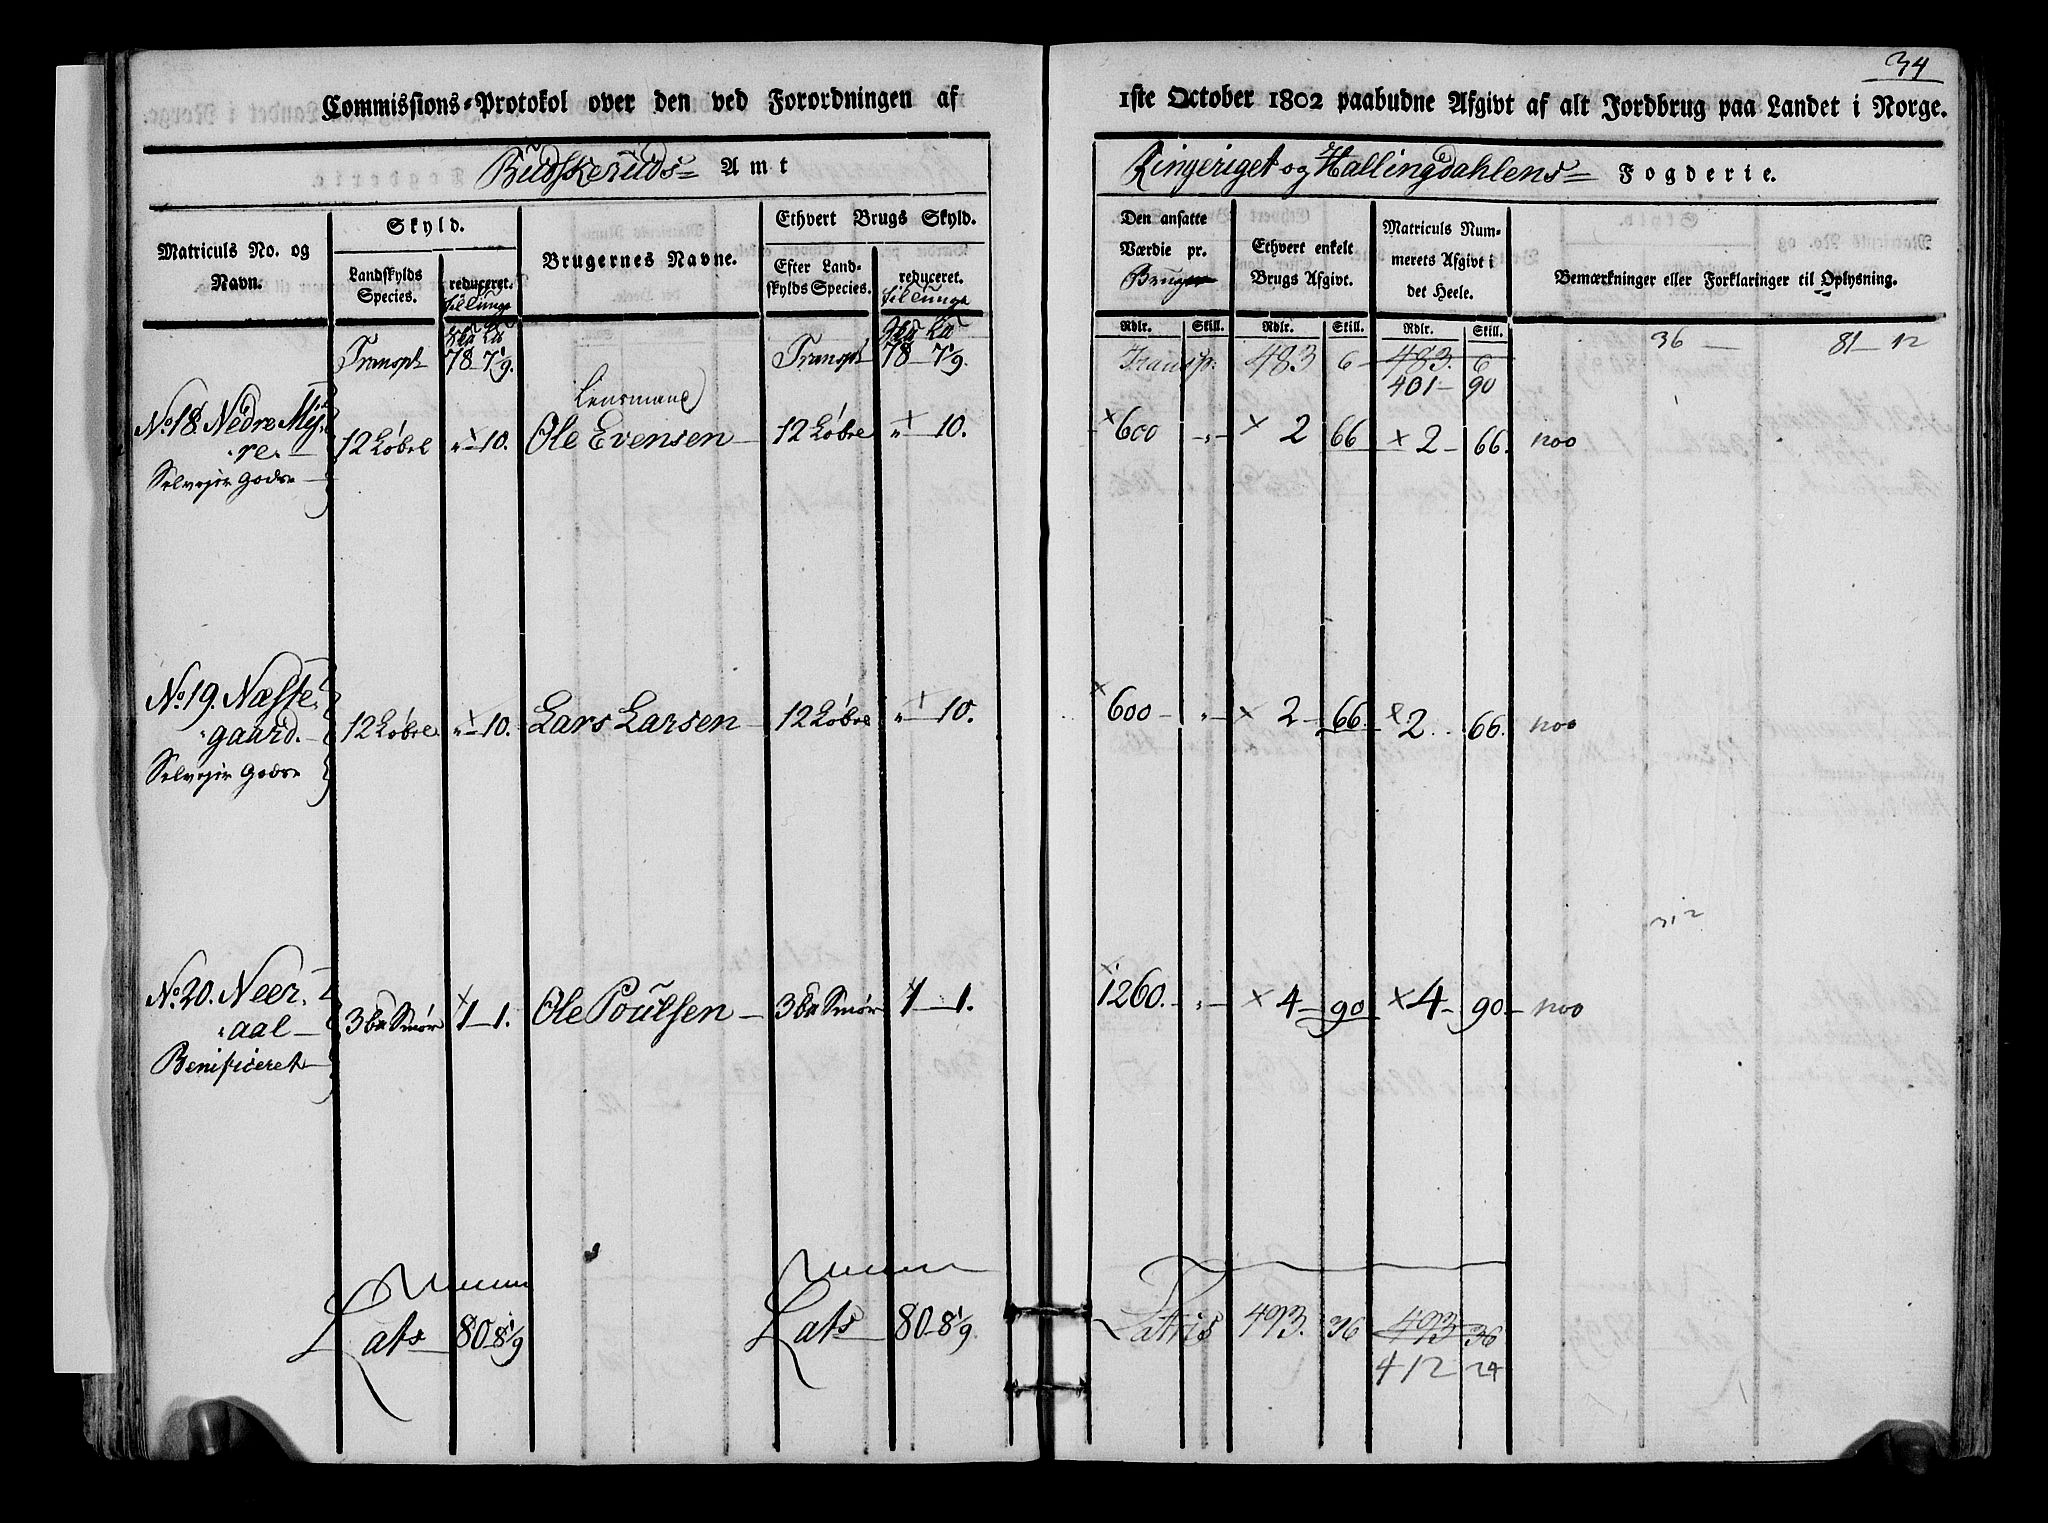 34
Commissions-Protokol over den ved Forordningen af 1ste October 1802 paabudne Afgivt af alt Jordbrug paa Landet i Norge.
Budskeruds Amt
Ringeriget og Hallingdahlens Fogderie.
Matriculs No. og Navn.
Skyld.
Landskylds Species.
reduceret.
Brugernes Navne.
Ethvert Brugs Skyld.
Efter Landskylds Species.
reduceret.
Den ansatte Værdie pr. Bruger
Ethvert enkelt Brugs Afgivt.
Matriculs Nummerets Afgivt i det Heele.
Bemærkninger eller Forklaringer til Oplysning.
Rdlr. Skill. Rdlr. Skill. Rdlr. Skill.
Transpt 78 7 1/9. Transpt 78 7 1/9. Transp: 483 6 483. 6 36 — 81 — 12
401 — 90
Lensmand
No. 18. Nedre Myre — 12 Løbre " 10. Ole Evensen — 12 Løbre " 10. 600 — " — 2 66 2 — 66. noo
Selvejer Gods
No. 19. Næstegaard. — 12 Løbre " 10. Lars Larsen — 12 Løbre " 10. 600 — " — 2 — 66. 2 . . 66. noo
Selvejer Gods
No. 20. Neeraal — 3 bn Smør 1 — 1. Ole Poulsen — 3 bn Smør 1 — 1. 1260. — " — 4 — 90 4 — 90. noo
Benificeret
Lats 80 8 1/9 Lats 80 — 8 1/9. Latris 493. 36 493 36
412 24